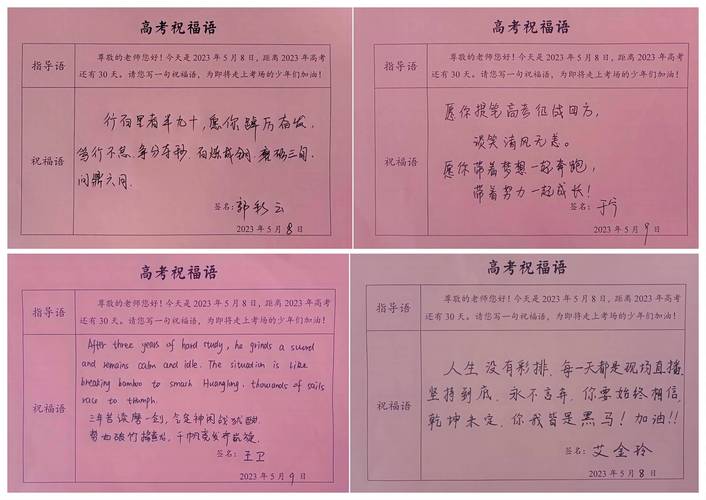 高考祝福语
指导语
尊敬的老师您好！今天是 2023 年 5 月 8 日，距离 2023 年高考
还有 30 天。请您写一句祝福语，为即将走上考场的少年们加油！
祝福语
行百里者半九十，愿你踔厉奋发，
笃行不怠，争分夺秒，百炼成钢，磨砺三旬，
问鼎六月.
签名：郭彩云
2023 年 5 月 8 日
高考祝福语
指导语
尊敬的老师您好！今天是 2023 年 5 月 8 日，距离 2023 年高考
还有 30 天。请您写一句祝福语，为即将走上考场的少年们加油！
祝福语
愿你提笔高考征战四方，
谈笑清风无恙。
愿你带着梦想一起奔跑，
带着努力一起成长！
签名：于
2023 年 5 月 9 日
高考祝福语
指导语
尊敬的老师您好！今天是 2023 年 5 月 8 日，距离 2023 年高考
还有 30 天。请您写一句祝福语，为即将走上考场的少年们加油！
祝福语
After three years of hard study, he grinds a sword
and remains calm and idle. The situation is like
breaking bamboo to smash Huangling, thousands of sails
race to triumph.
三年苦读磨一剑，气定神闲战犹酣
势如破竹捣黄龙，千帆竞发齐凯旋.
签名：王卫
2023 年 5 月 9 日
高考祝福语
指导语
尊敬的老师您好！今天是 2023 年 5 月 8 日，距离 2023 年高考
还有 30 天。请您写一句祝福语，为即将走上考场的少年们加油！
祝福语
人生没有彩排，每一天都是现场直播
坚持到底，永不言弃，你要始终相信，
乾坤未定，你我皆是黑马！加油!!
签名：艾金玲
2023 年 5 月 8 日